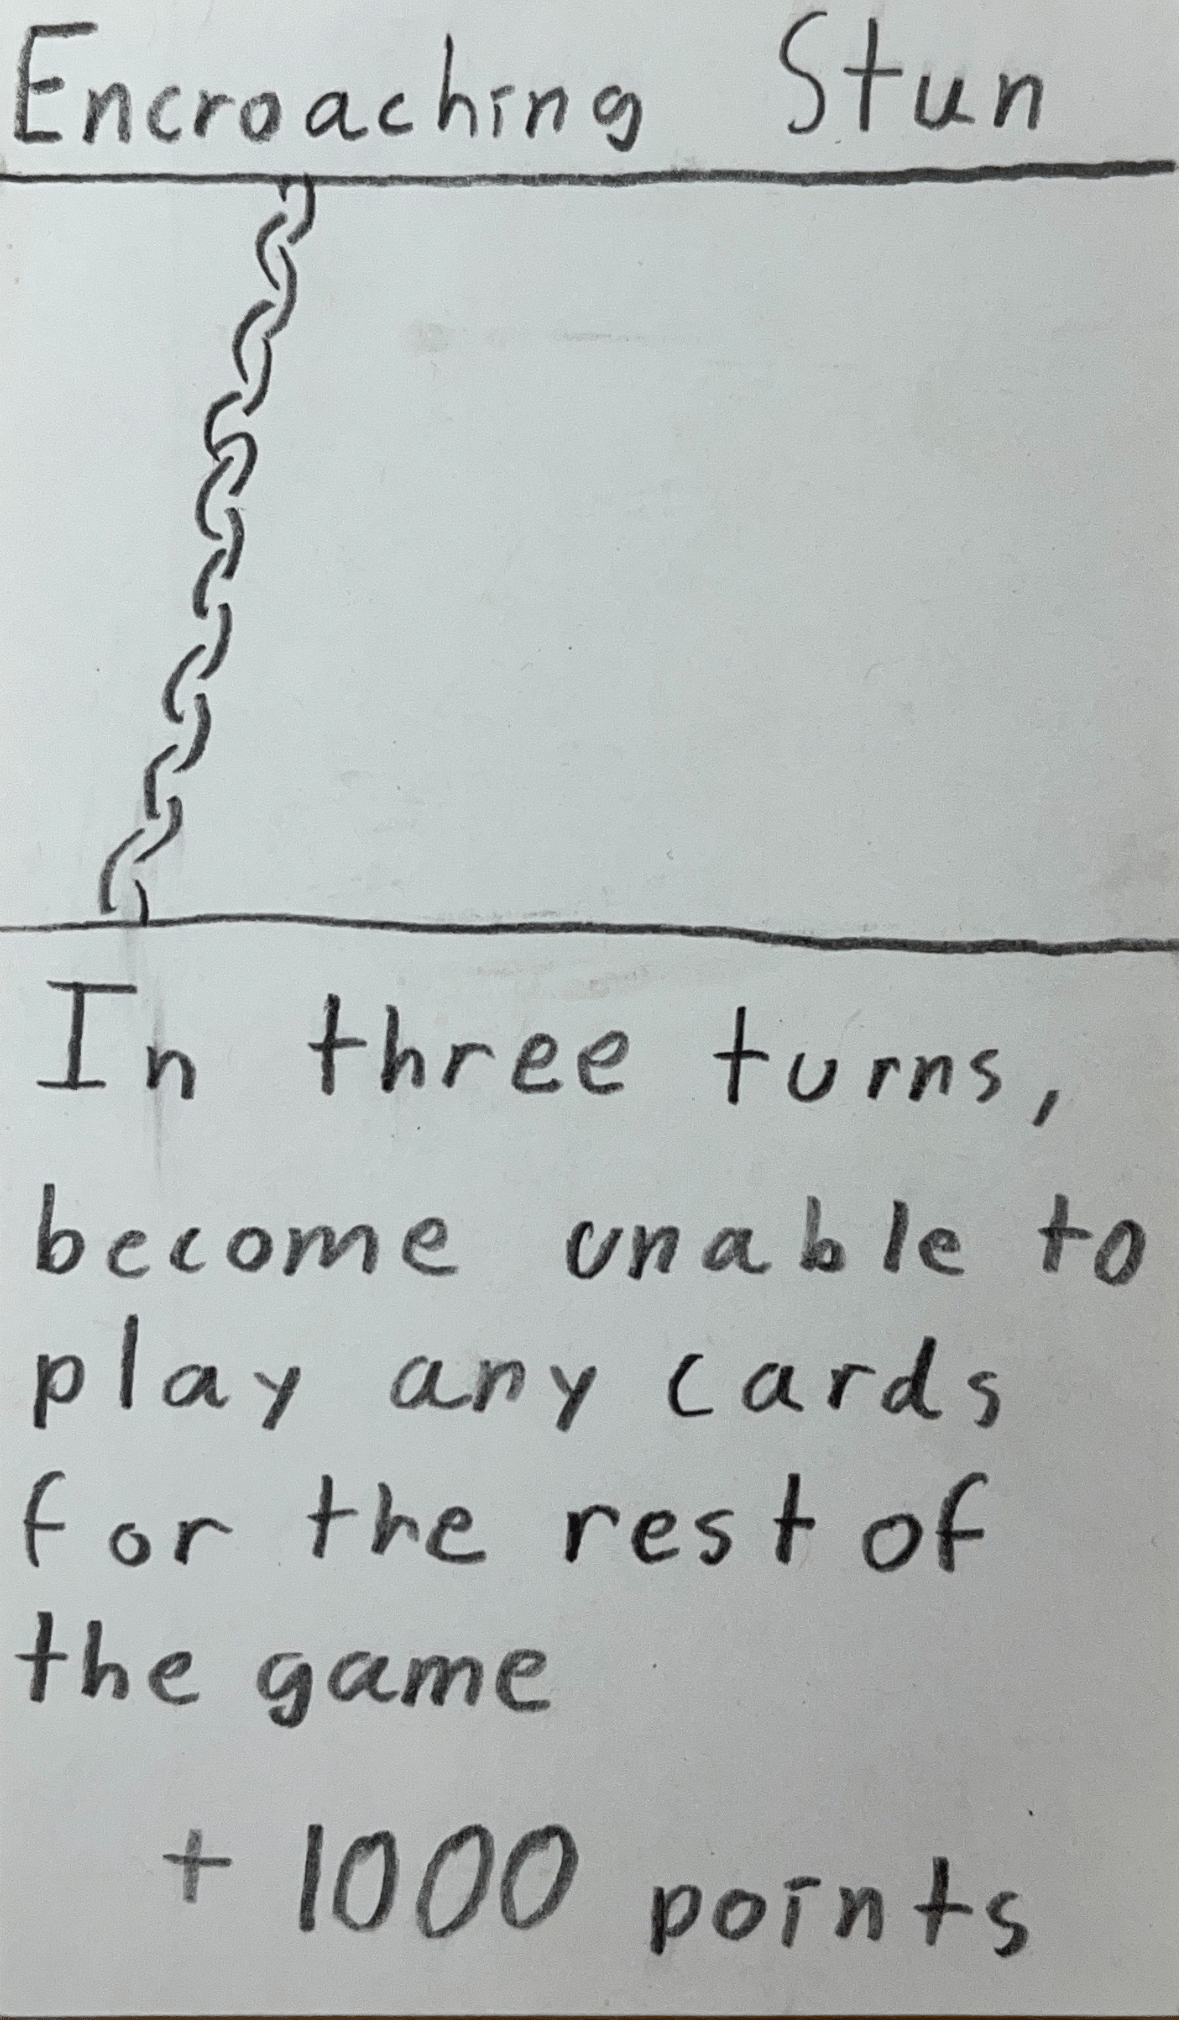 Encroaching Stun
In three turns,
become unable to
play any cards
for the rest of
the game
+ 1000 points